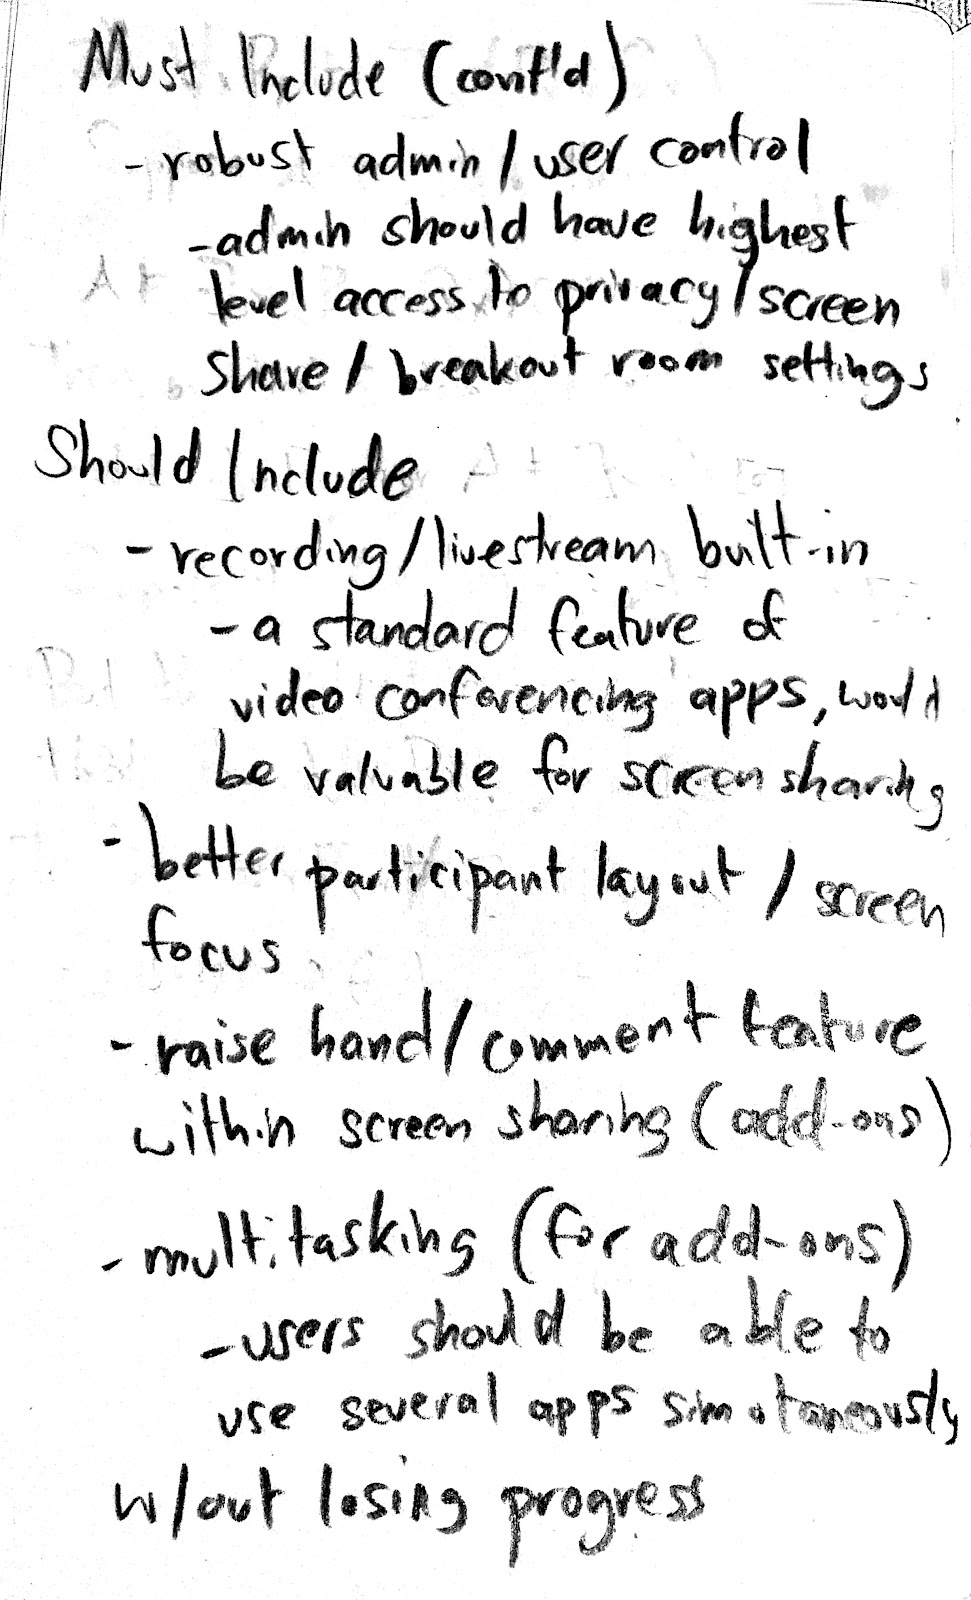 Must Include (cont'd)
- robust admin / user control
- admin should have highest
level access to privacy / screen
share / breakout room settings
Should Include
- recording / livestream built-in
- a standard feature of
video conferencing apps, would
be valuable for screen sharing
- better participant layout / screen
focus
- raise hand / comment feature
within screen sharing (add-ons)
- multitasking (for add-ons)
- users should be able to
use several apps simotaneously
w/out losing progress